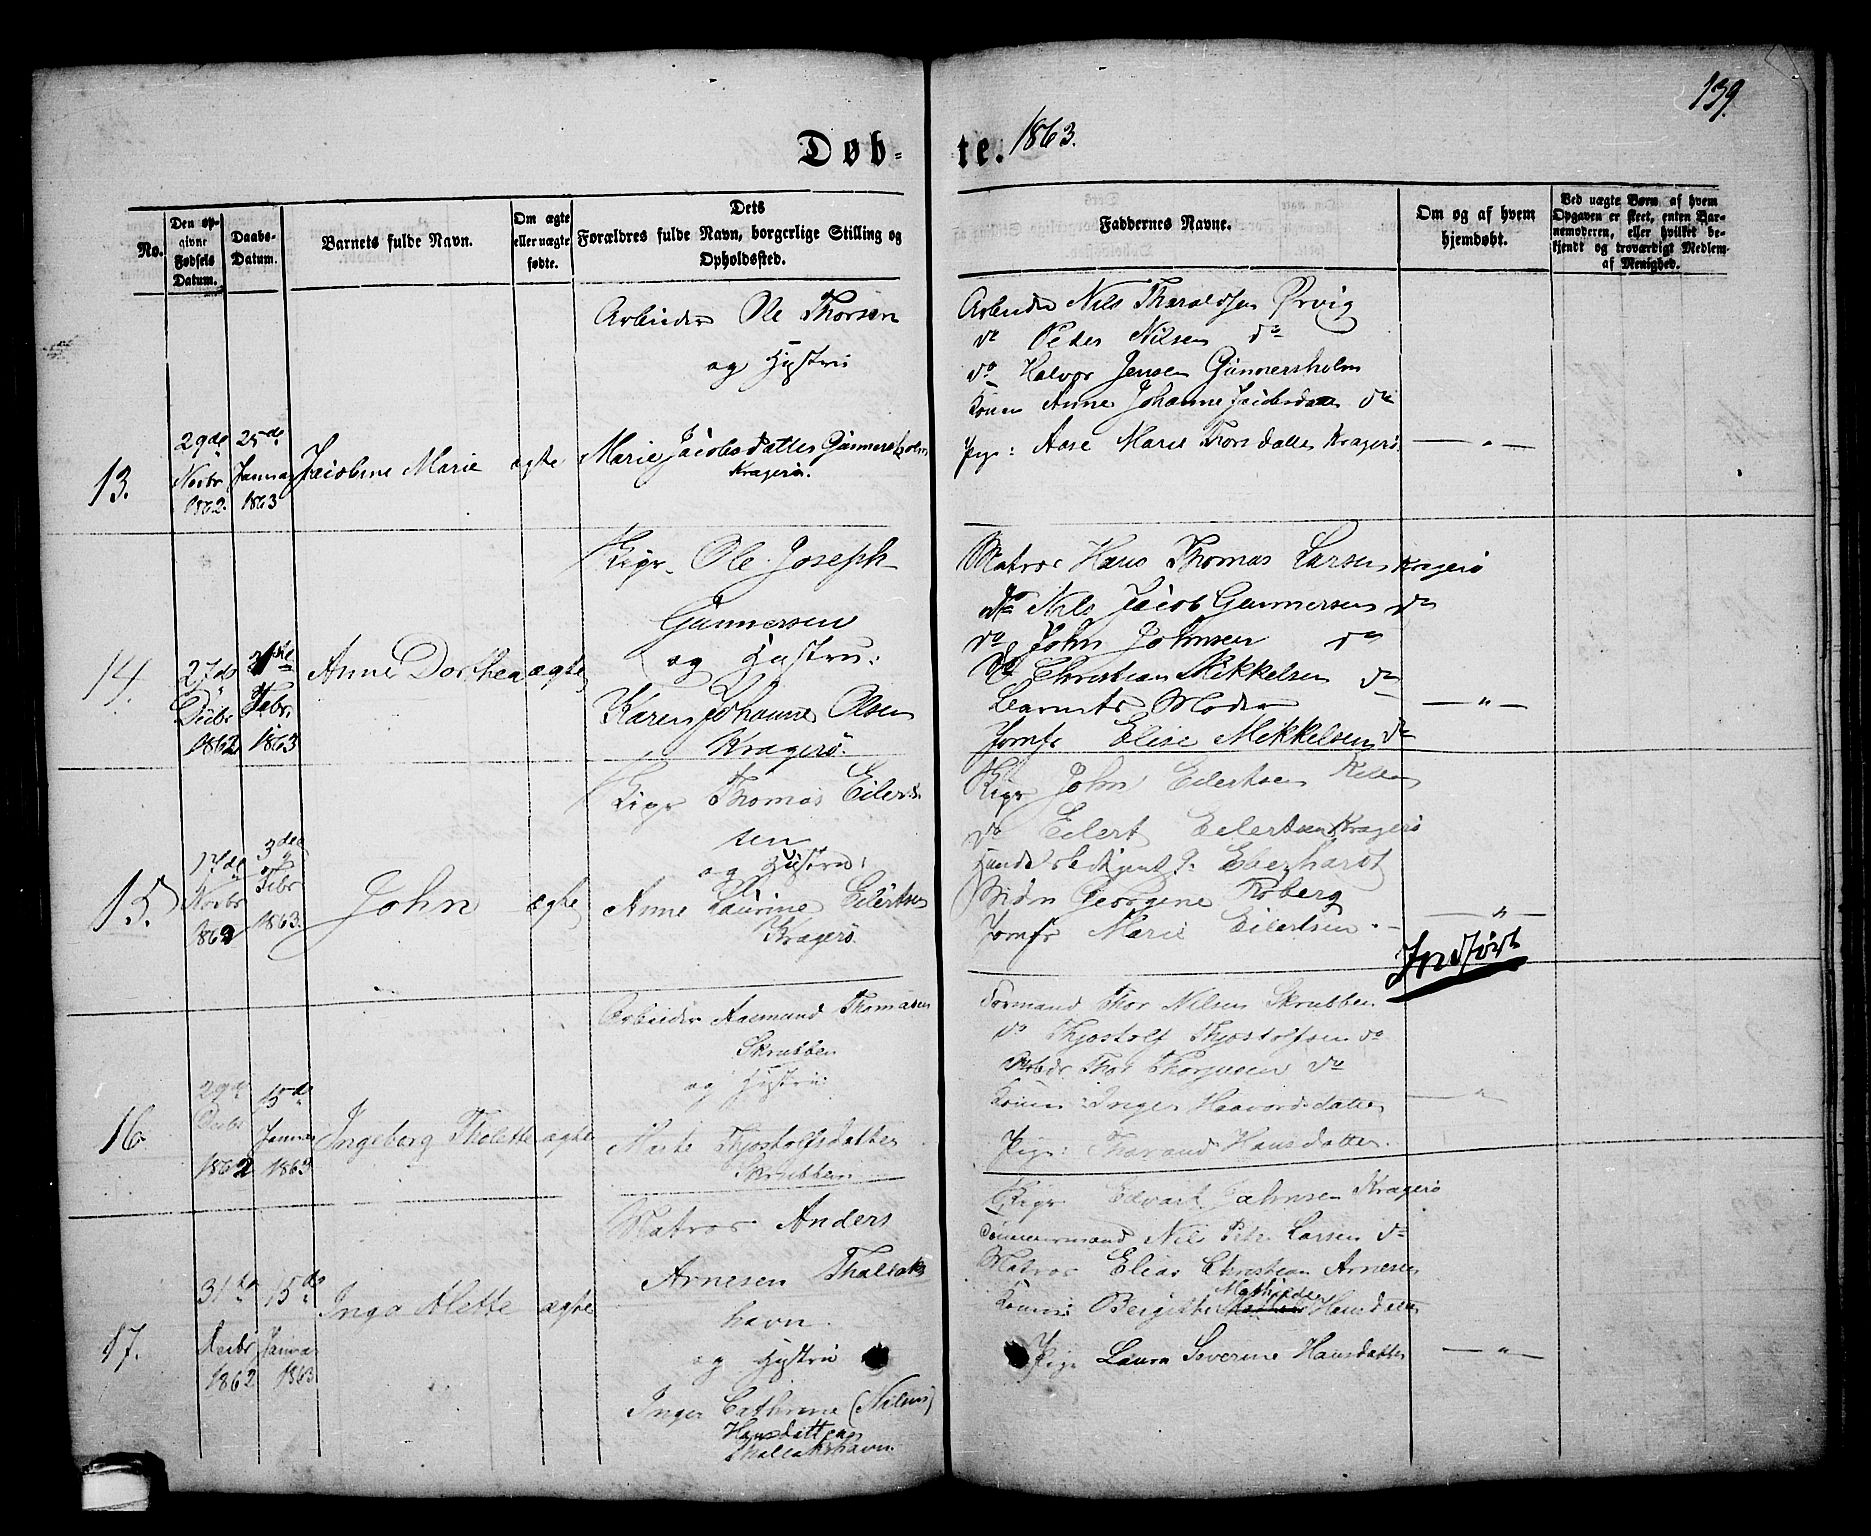 139.
Døb-
te. 1863.
No.
Den op-
givne
Fødsels
Datum.
Daabs-
Datum.
Barnets fulde Navn.
Om ægte
eller uægte
fødte.
Dets
Forældres fulde Navn, borgerlige Stilling og
Opholdssted.
Faddernes Navne.
Om og af hvem
hjemdøbt.
Ved uægte Børn af hvem
Opgaven er skeet, enten Bar-
nemoderen, eller hvilket be-
kjendt og troværdigt Medlem
af Menighed.
13.
29de
Novbr
1862.
25de
Januar
1863
Jacobine Marie
ægte
Arbeider Ole Thorsen
og Hustru
Marie Jacobsdatter Gunnersholm
Kragerø.
Arbeider Nils Tharaldsen Ørvig
do Peder Nilsen do
do Halvor Jensen Gunnersholm
Konen Anne Johanne Jacobsdatter do
Pige: Aase Marie Thorsdatter Kragerø.
— " —
14.
27de
Decbr
1862
Febr.
1863
Anne Dorthea
ægte
Ole Joseph
Gunnersen
og Hustru:
Karen Johanne Olsen
Kragerø.
Matros Hans Thomas Larsen Kragerø
do Nils Jacob Gunnersen do
do John Johnsen do
do Christian Mikkelsen do
Barnets Moder
Jomfr Elise Mikkelsen do
— " —
15.
17de
Novbr
1862
3die
Febr
1863.
John
ægte
Thomas Eilert-
sen
og Hustru:
Anne Laurine Eilertsen
Kragerø.
John Eilertsen
do Eilert Eilertsen Kragerø
Eberhardt
Georgine
Jomfr Marie Eilertsen.
— " —
Indført
16.
29de
Decbr
1862
15de
Januar
1863
Ingeborg Tholette
ægte
Arbeider Aasmund Thomasen
Skrubben
og Hustru:
Marte Thjostolfsdatter
Skrubben
Formand Thor Nilsen Skrubben
do Thjostolf Thjostolfsen do
Arbdr Thor Thorjusen do
Konen: Inger Haavordsdatter
Pige: Thorand Hansdatter.
— " —
17.
31te
Decbr
1862
15de
Januar
1863
Inga Alette
ægte
Matros Anders
Arnesen Thallaks
havn.
og Hustru
Inger Cathrine (Nilsen)
Hansdatter
Thallakshavn.
Edvart Johnsen Kragerø
Tømmermand Nils Peter Larsen do
Matros Elias Christian Arnesen
Mathilde
Konen: Bergithe Hansdatter
Pige Laura Severine Hansdatter
— " —